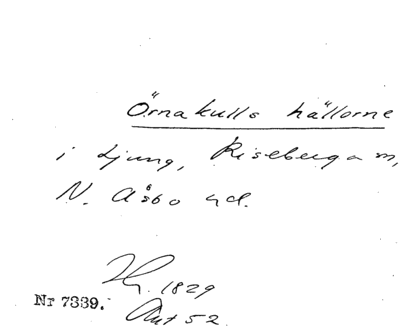 Örnakulls hällorne
i Ljung, Riseberga sn,
N. Åsbo hd.
1829
Nr 7339.
Ant 52.